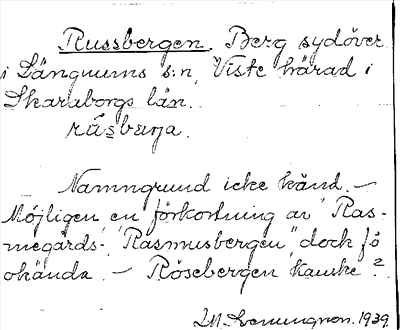 Russbergen. Berg sydöver
i Längnums s:n, Viste härad i
Skaraborgs län.
rúsbæŋa.
Namngrund icke känd. –
Möjligen en förkortning av "Ras-
megårds-, "Rasmusbergen" dock få
okända. – Rösebergen kanske?
1939.